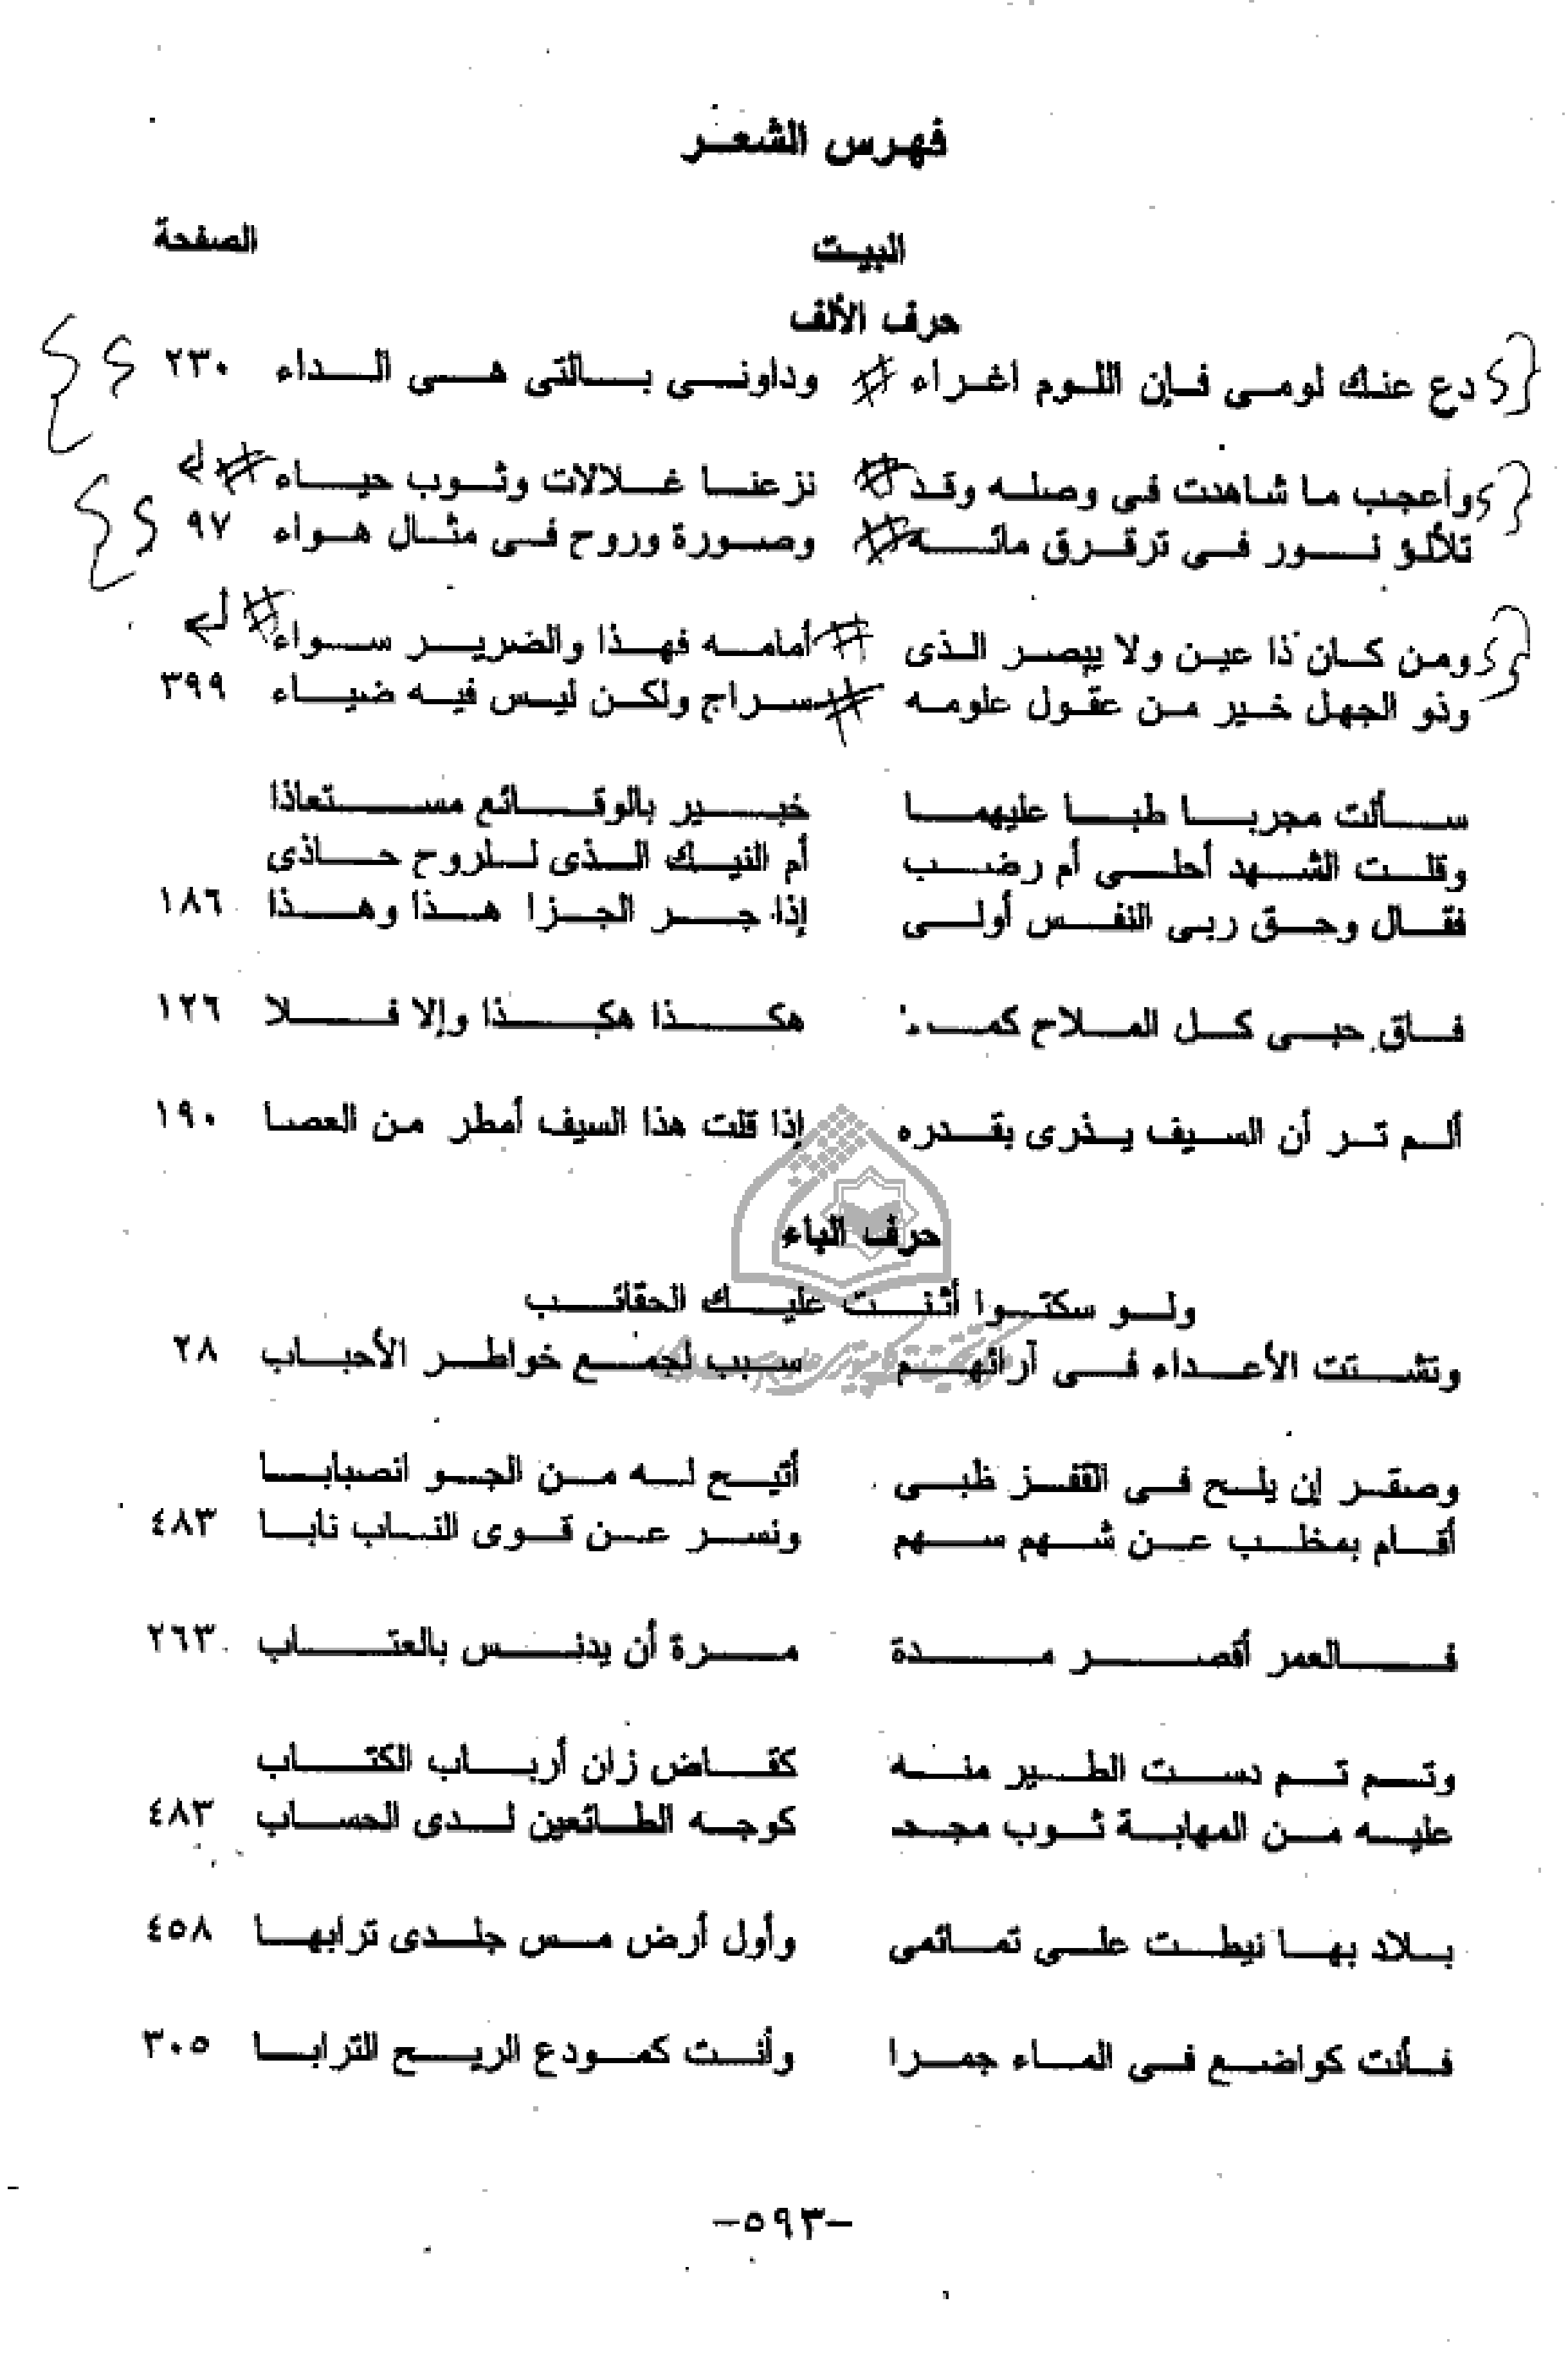 فهرس الشعر
البيت الصفحة
حرف الألف
دع عنك لومى فإن اللوم اغراء # وداونى بالتى هى الداء ٢٣٠
وأعجب ما شاهدت فى وصله وقد # نزعنا غلالات وثوب حياء #
تلألؤ نور فى ترقرق مائه # وصورة وروح فى مثال هواء ٩٧
ومن كان ذا عين ولا يبصر الذى # أمامه فهذا والضرير سواء #
وذو الجهل خير من عقول علومه # سراج ولكن ليس فيه ضياء ٣٩٩
سألت مجربا طبا عليهما خبير بالوقائع مستعاذا
وقلت الشهد أحلى أم رضب أم النيك الذى للروح حاذى
فقال وحق ربى النفس أولى إذا جر الجزا هذا وهذا ١٨٦
فاق حبى كل الملاح هكذا هكذا وإلا فلا ١٢٦
ألم تر أن السيف يذرى بقدره إذا قلت هذا السيف أمطر من العصا ١٩٠
حرف الباء
ولو سكتوا أثنت عليك الحقائب
وتشتت الأعداء فى آرائهم سبب لجمع خواطر الأحباب ٢٨
وصقر إن يلح فى القفز ظبى أتيح له من الجو انصبابا
أقام بمخلب عن شهم سهم ونسر عن قوى الناب نابا ٤٨٣
فالعمر أقصر مدة مرة أن يدنس بالعتاب ٢٦٣
وتم تم دست الطير منه كقاض زان أرباب الكتاب
عليه من المهابة ثوب مجد كوجه الطائعين لدى الحساب ٤٨٣
بلاد بها نيطت على تمائمى وأول أرض مس جلدى ترابها ٤٥٨
فأنت كواضع فى الماء جمرا وأنت كمودع الريح الترابا ٣٠٥
-٥٩٣-